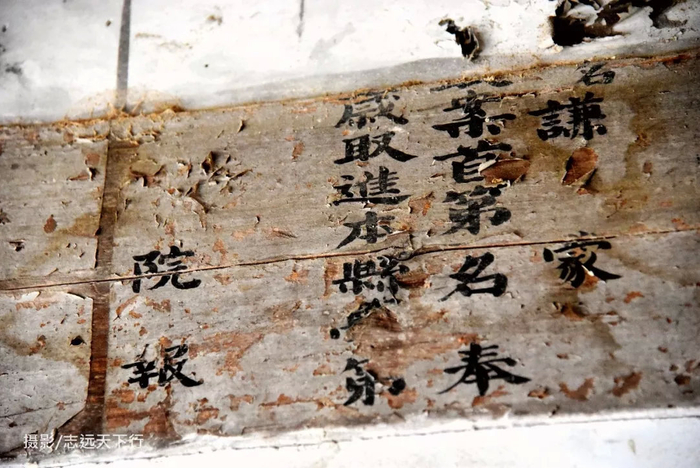 名謙家
案首第名奉
歲取進本縣第
院報
摄影/志远天下行